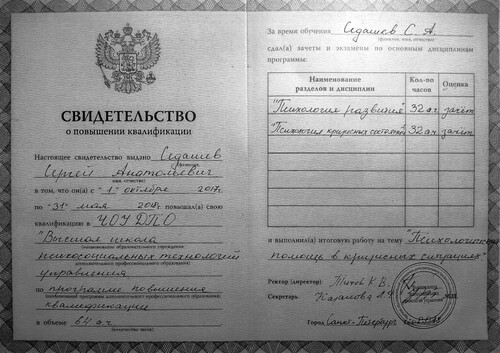 СВИДЕТЕЛЬСТВО
о повышении квалификации
Настоящее свидетельство выдано Седашев
(фамилия,
Сергей Анатольевич
имя, отчество)
в том, что он(а) с "1" октября 2017г.
по "31" мая 2018г. повышал(а) свою
квалификацию в ЧОУ ДПО
"Высшая школа
(наименование образовательного учреждения
психосоциальных технологий
дополнительного профессионального образования)
управления
по программе повышения
(наименование программы дополнительного профессионального образования)
квалификации
в объеме 64 а.ч.
(количество часов)
За время обучения Седашев С. А.
(фамилия, имя, отчество)
сдал(а) зачеты и экзамены по основным дисциплинам
программы:
Наименование разделов и дисциплин Кол-во часов Оценка
"Психология развития" 32 а.ч. зачёт
"Психология кризисных состояний" 32 а.ч. зачёт
и выполнил(а) итоговую работу на тему "Психологическая
помощь в кризисных ситуациях"
Ректор (директор) К. В.
Секретарь
Город Санкт-Петербург